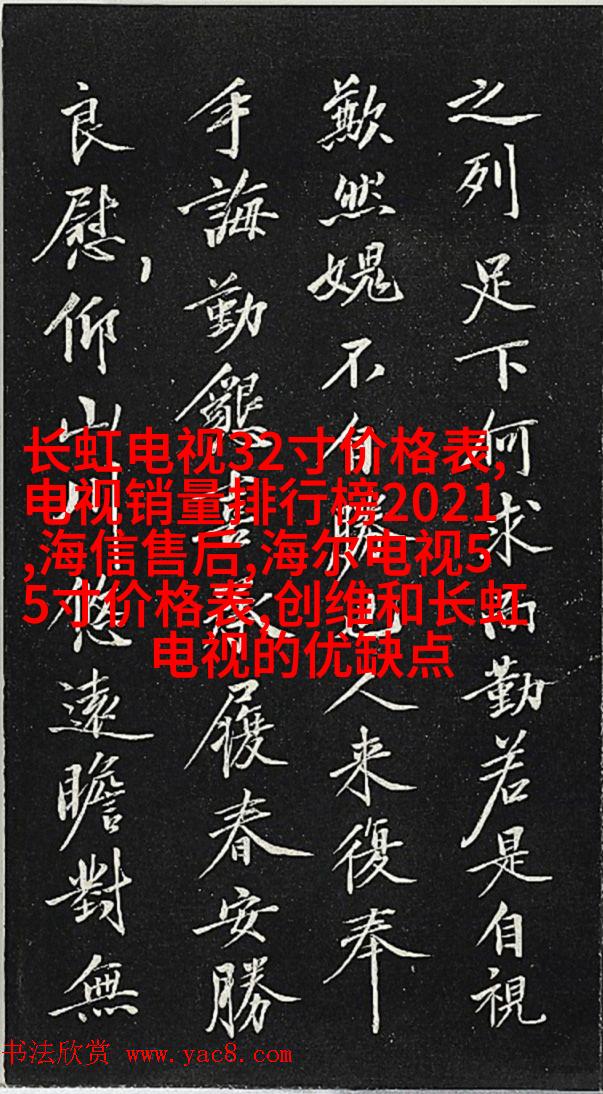 之列足下何求而勤若是自視
歉然媿不自勝也人来復奉
手誨勤懇喜履春安勝
良慰,仰山川悠遠瞻對無
长虹电视32寸价格表,
电视销量排行榜2021
,海信售后,海尔电视5
5寸价格表,创维和长虹
电视的优缺点
书法欣赏 www.yac8.com